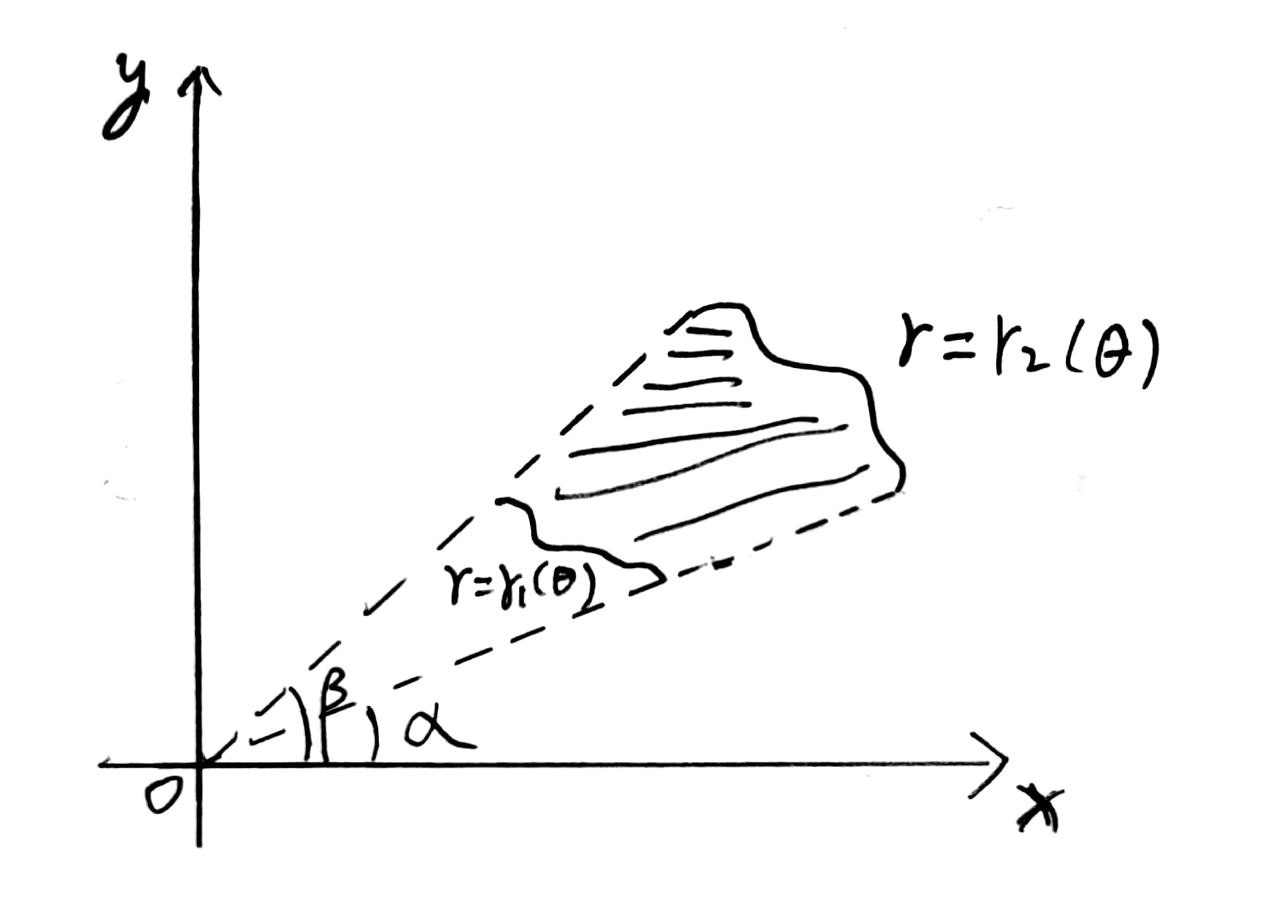 y
r=r₂(θ)
r=r₁(θ)
β
α
O
x